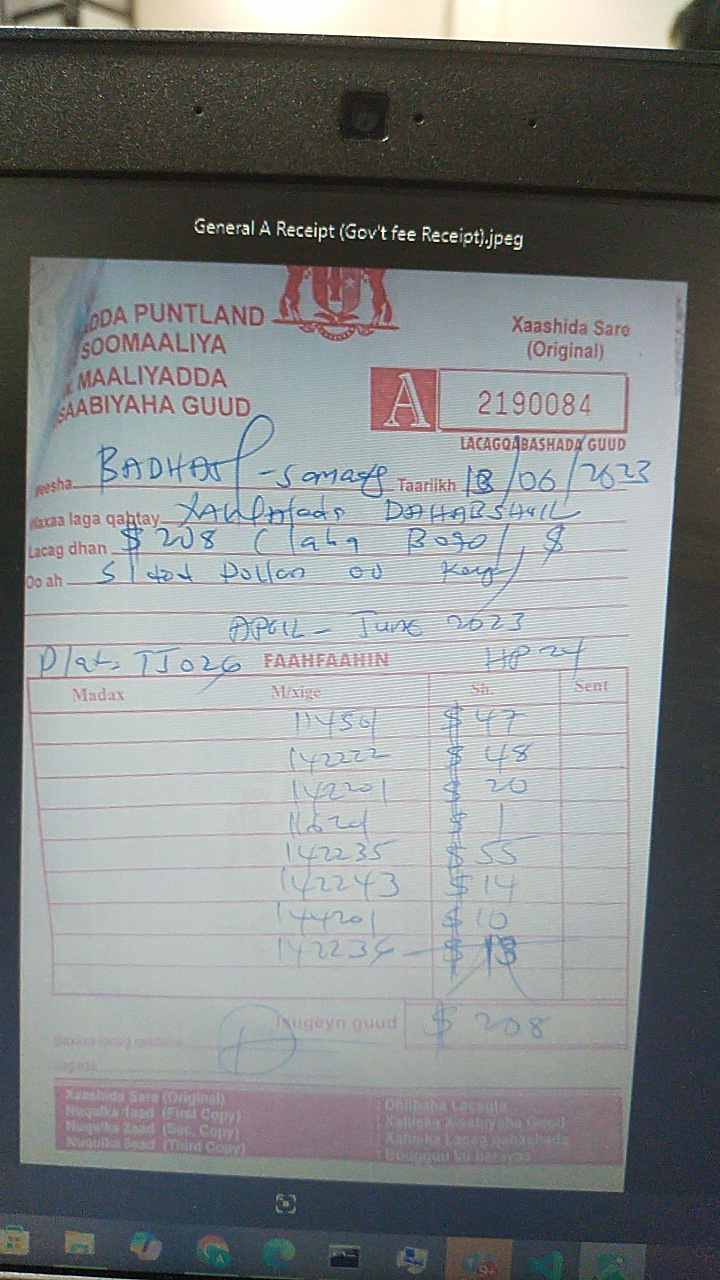 General A Receipt (Gov't fee Receipt).jpeg
DDA PUNTLAND
SOOMAALIYA
MAALIYADDA
SAABIYAHA GUUD
Xaashida Sare
(Original)
A 2190084
LACAGQABASHADA GUUD
eesha BADHAN - Taariikh 13/06/2023
Waxaa laga qabtay DAHABSHIIL
Lacag dhan $ 208 ( Laba Boqol
Oo ah Dollar oo
APRIL - June 2023
Plat: TJ026 FAAHFAAHIN HP 24
Madax M/xige Sh. Sent
$ 47
142222 $ 48
142201 $ 20
$ 1
142235 $ 55
142243 $ 14
144201 $ 10
$ 13
Isugeyn guud $ 208
Xaashida Sare (Original)
Nuqulka 1aad (First Copy)
Nuqulka 2aad (Sec. Copy)
Nuqulka 3aad (Third Copy)
: Xafiiska Xisabiyaha Guud
: Xafiiska Lacag qabashada